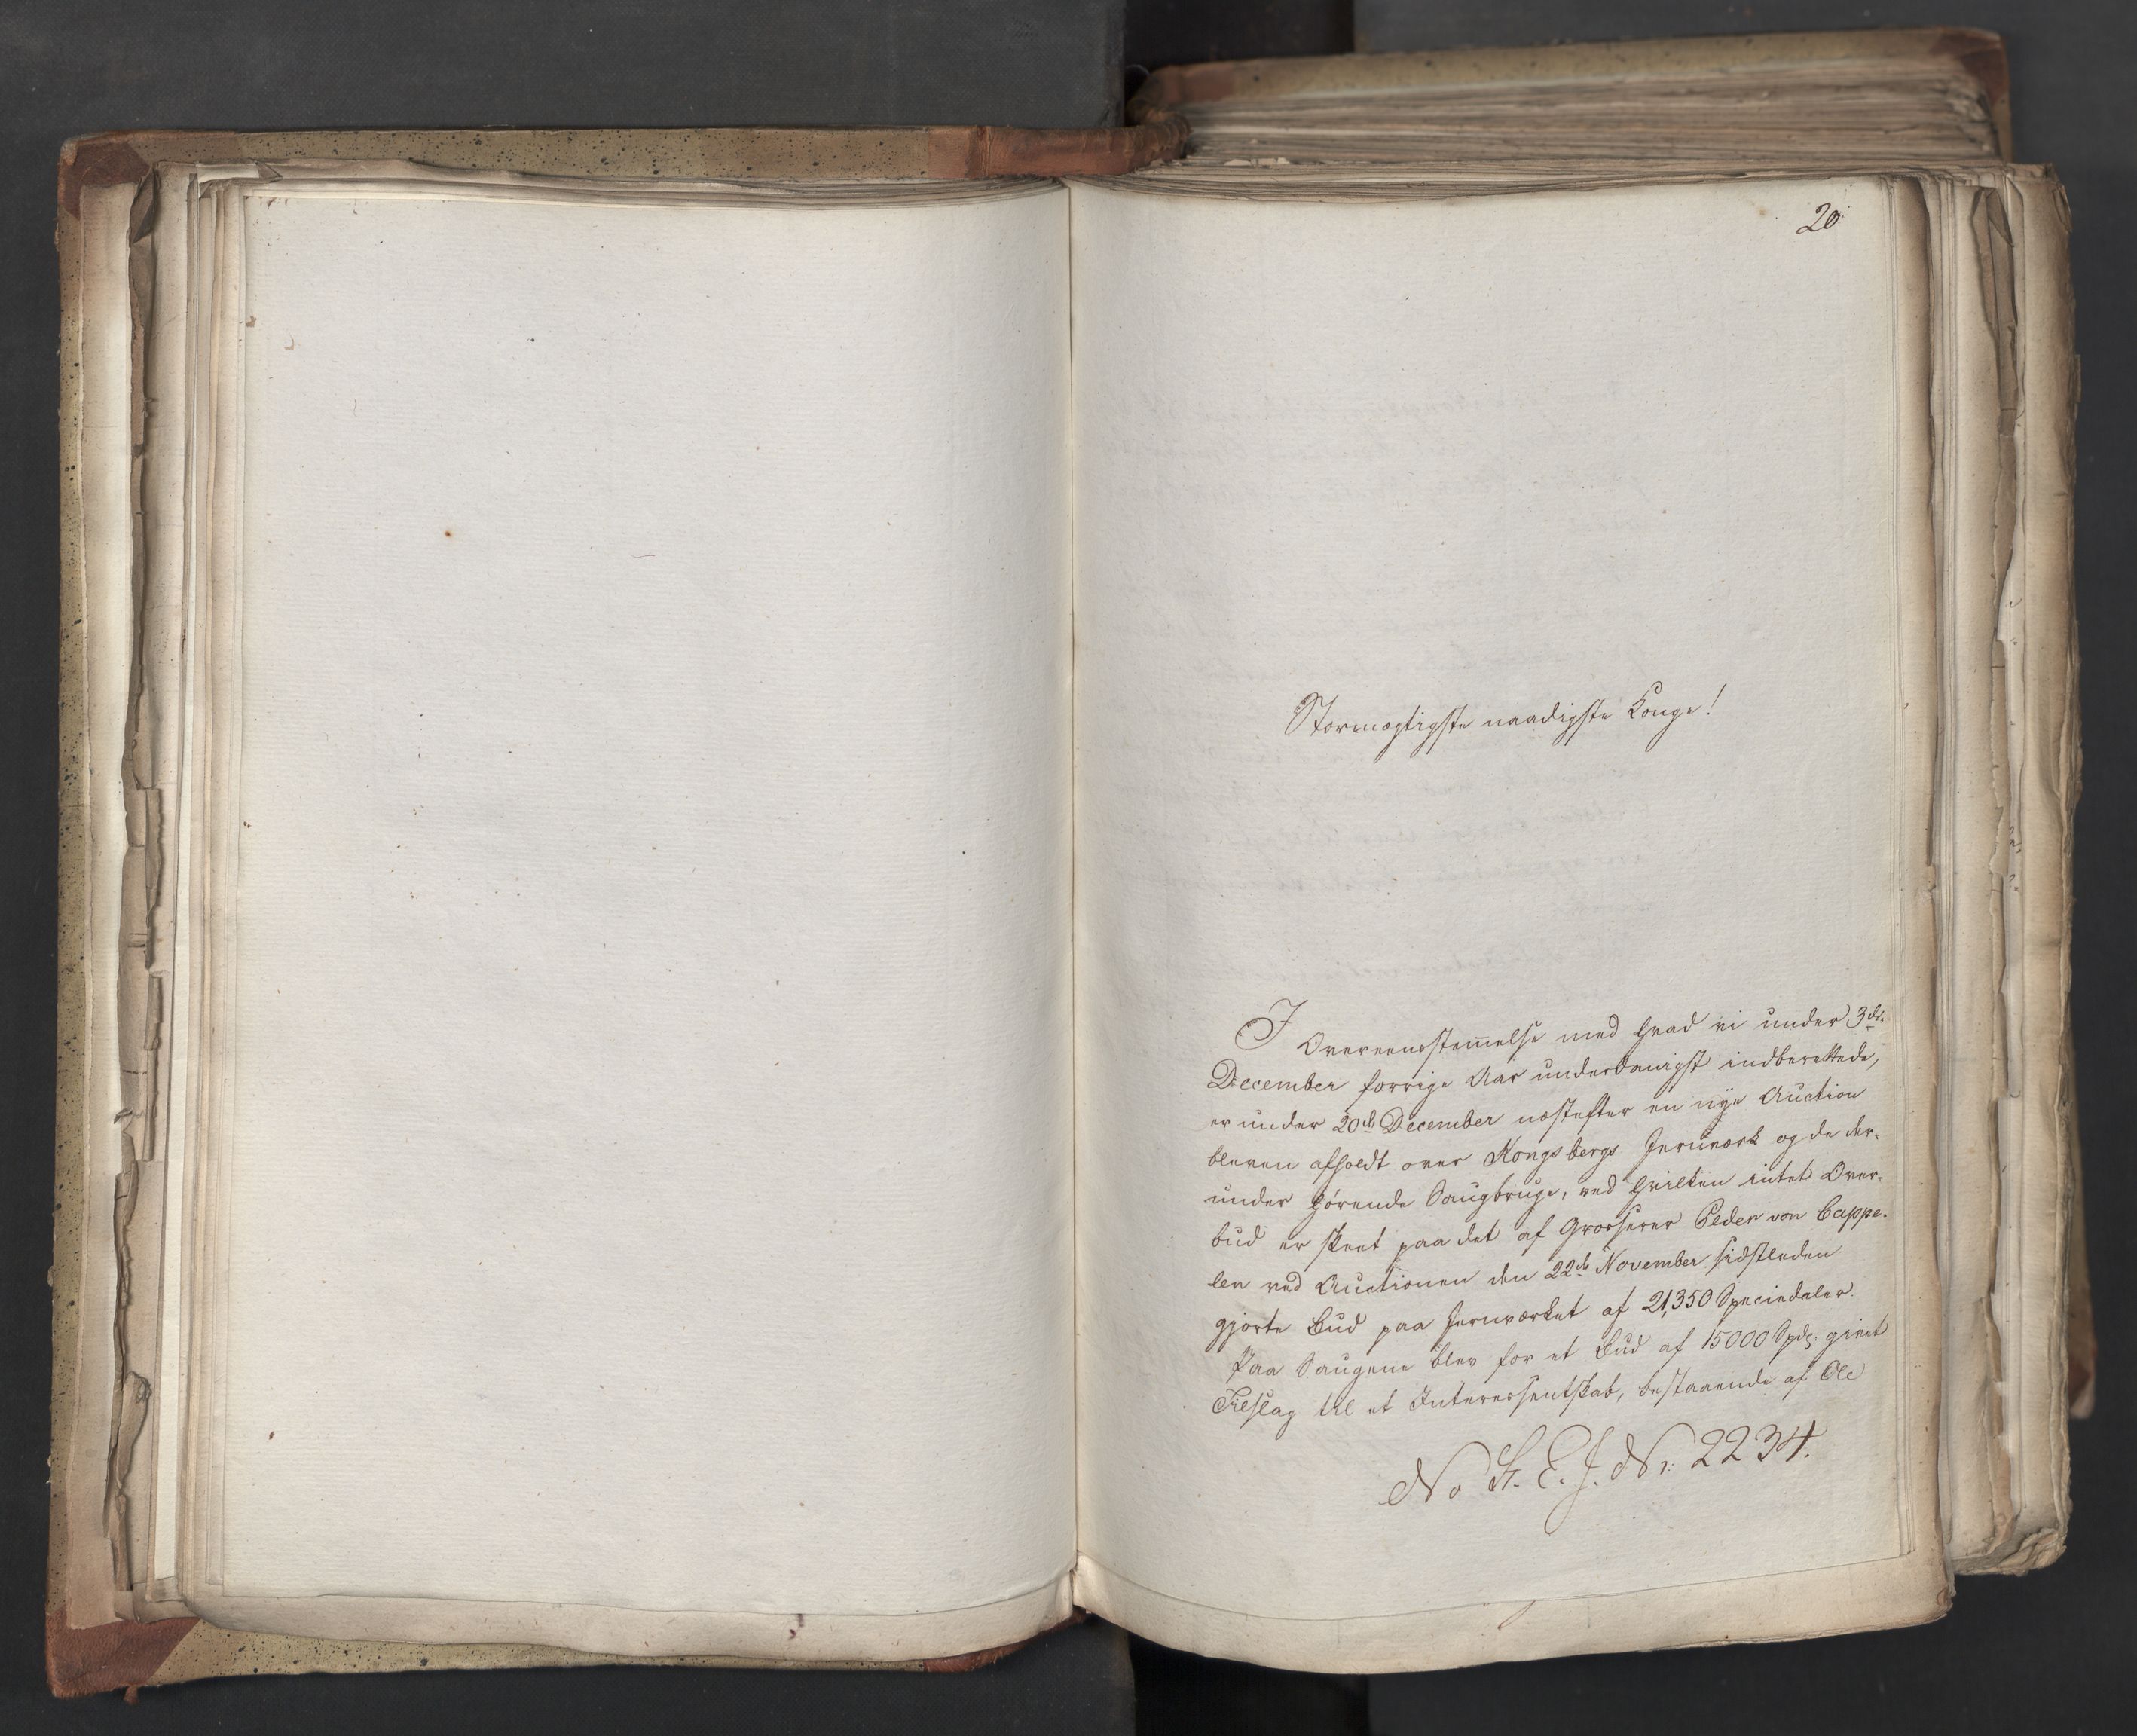 20
Stormægtigste naadigste Konge!
I Overeensstem̄else med hvad vi under 3de
December forrige Aar underdanigst indberettede,
er under 20de December næstefter en nye Auction
bleven afholdt over Kongsbergs Jernværk og de der-
under hørende Saugbruge, ved hvilken intet Over-
bud er skeet paa det af Grosserer Peder von Cappe-
len ved Auctionen den 22de November sidstleden
gjorte Bud paa Jernværket af 21,350 Speciedaler.
Paa Saugene blev for et Bud af 15000 Spd. givet
Tilslag til et Interessentskab, bestaaende af Ole
No J. Nr. 2234.